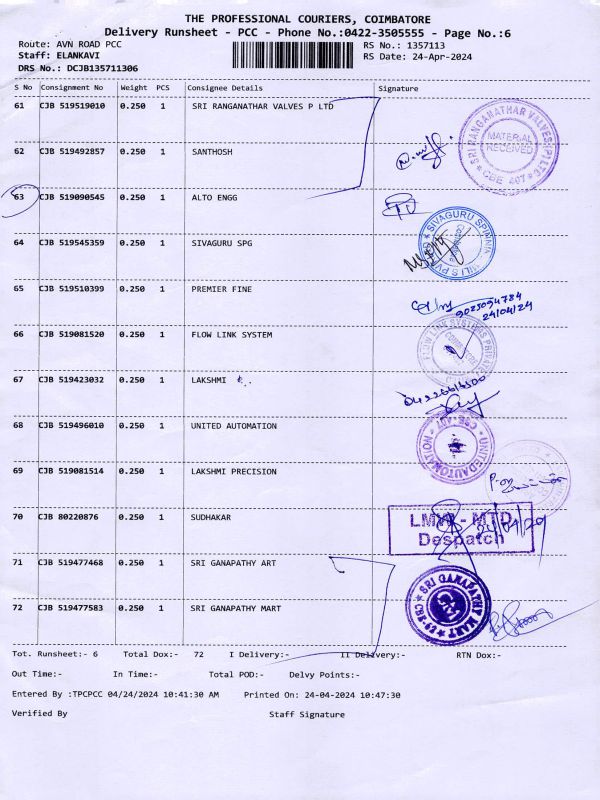 THE PROFESSIONAL COURIERS, COIMBATORE
Delivery Runsheet - PCC - Phone No.:0422-3505555 - Page No.:6
Route: AVN ROAD PCC
RS No.: 1357113
Staff: ELANKAVI
RS Date: 24-Apr-2024
DRS No.: DCJB135711306
S No Consignment No Weight PCS Consignee Details Signature
61 CJB 519519010 0.250 1 SRI RANGANATHAR VALVES P LTD
SRI RANGANATHAR VALVES (P) LTD
MATERIAL
RECEIVED
CBE 407
62 CJB 519492857 0.250 1 SANTHOSH
63 CJB 519090545 0.250 1 ALTO ENGG
64 CJB 519545359 0.250 1 SIVAGURU SPG
65 CJB 519510399 0.250 1 PREMIER FINE
9025094784
24/04/24
66 CJB 519081520 0.250 1 FLOW LINK SYSTEM
FLOW LINK SYSTEMS PRIVATE
67 CJB 519423032 0.250 1 LAKSHMI
68 CJB 519496010 0.250 1 UNITED AUTOMATION
UNITED AUTOMATION
CBE-407
69 CJB 519081514 0.250 1 LAKSHMI PRECISION
70 CJB 80220876 0.250 1 SUDHAKAR
LMW - MTD
Despatch
71 CJB 519477468 0.250 1 SRI GANAPATHY ART
72 CJB 519477583 0.250 1 SRI GANAPATHY MART
SRI GANAPATHY MART
Tot. Runsheet:- 6 Total Dox:- 72 I Delivery:- II Delivery:- RTN Dox:-
Out Time:- In Time:- Total POD:- Delvy Points:-
Entered By :TPCPCC 04/24/2024 10:41:30 AM Printed On: 24-04-2024 10:47:30
Verified By Staff Signature